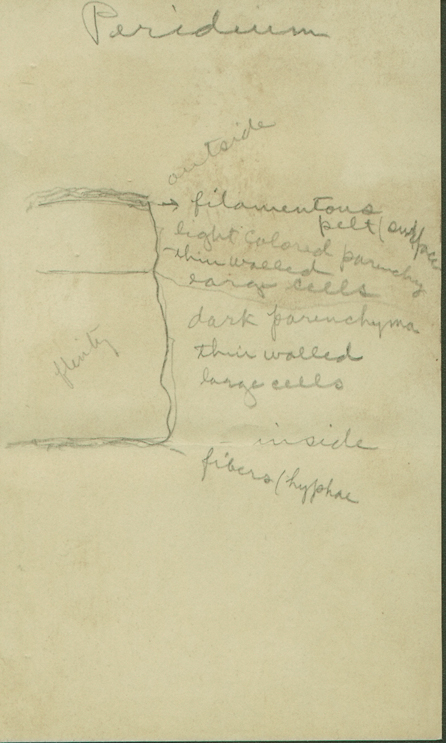 Peridium
outside
filamentous
pelt/
light colored parenchy
thin walled
large cells
dark parenchyma
thin walled
large cells
flinty
inside
fibers/hyphae